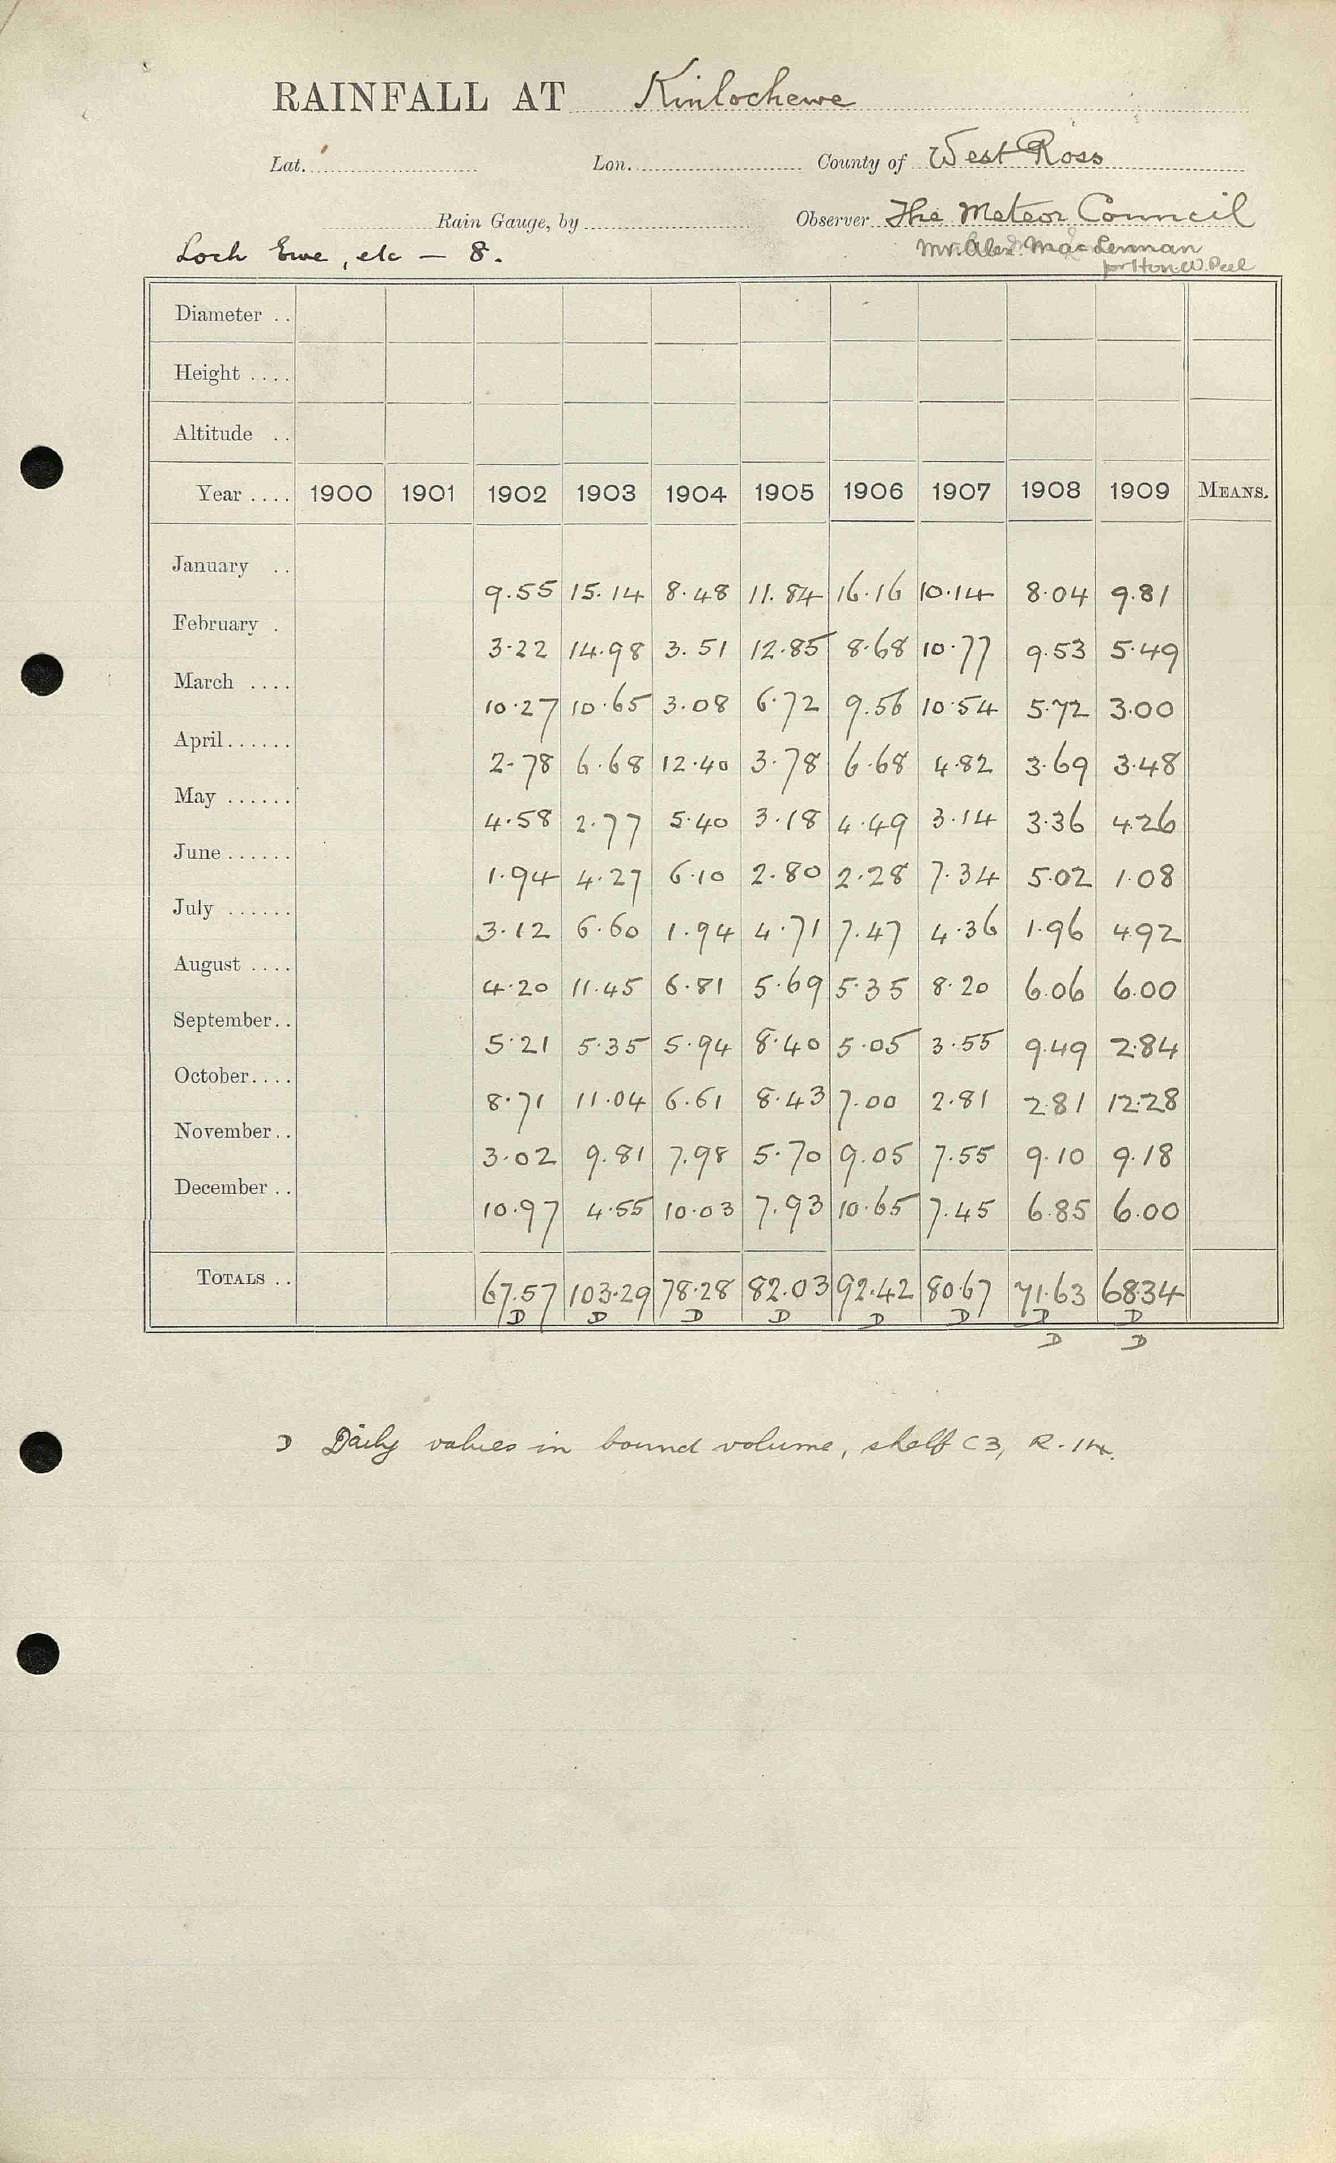 RAINFALL AT Kinlochewe
Lat. Lon. County of West Ross
Rain Gauge, by Observer The Meteor Council
Loch Ewe, etc — 8. Mr. Alex. MacLennan
for Hon. W. Peel
Diameter ..
Height ....
Altitude ..
Year .... 1900 1901 1902 1903 1904 1905 1906 1907 1908 1909 MEANS.
January .. 9.55 15.14 8.48 11.84 16.16 10.14 8.04 9.81
February . 3.22 14.98 3.51 12.85 8.68 10.77 9.53 5.49
March .... 10.27 10.65 3.08 6.72 9.56 10.54 5.72 3.00
April...... 2.78 6.68 12.40 3.78 6.68 4.82 3.69 3.48
May ...... 4.58 2.77 5.40 3.18 4.49 3.14 3.36 4.26
June ...... 1.94 4.27 6.10 2.80 2.28 7.34 5.02 1.08
July ...... 3.12 6.60 1.94 4.71 7.47 4.36 1.96 4.92
August .... 4.20 11.45 6.81 5.69 5.35 8.20 6.06 6.00
September.. 5.21 5.35 5.94 8.40 5.05 3.55 9.49 2.84
October.... 8.71 11.04 6.61 8.43 7.00 2.81 2.81 12.28
November.. 3.02 9.81 7.98 5.70 9.05 7.55 9.10 9.18
December .. 10.97 4.55 10.03 7.93 10.65 7.45 6.85 6.00
TOTALS .. 67.57 103.29 78.28 82.03 92.42 80.67 71.63 68.34
D D D D D D D D
D D
D Daily values in bound volume, shelf C3, R.14.